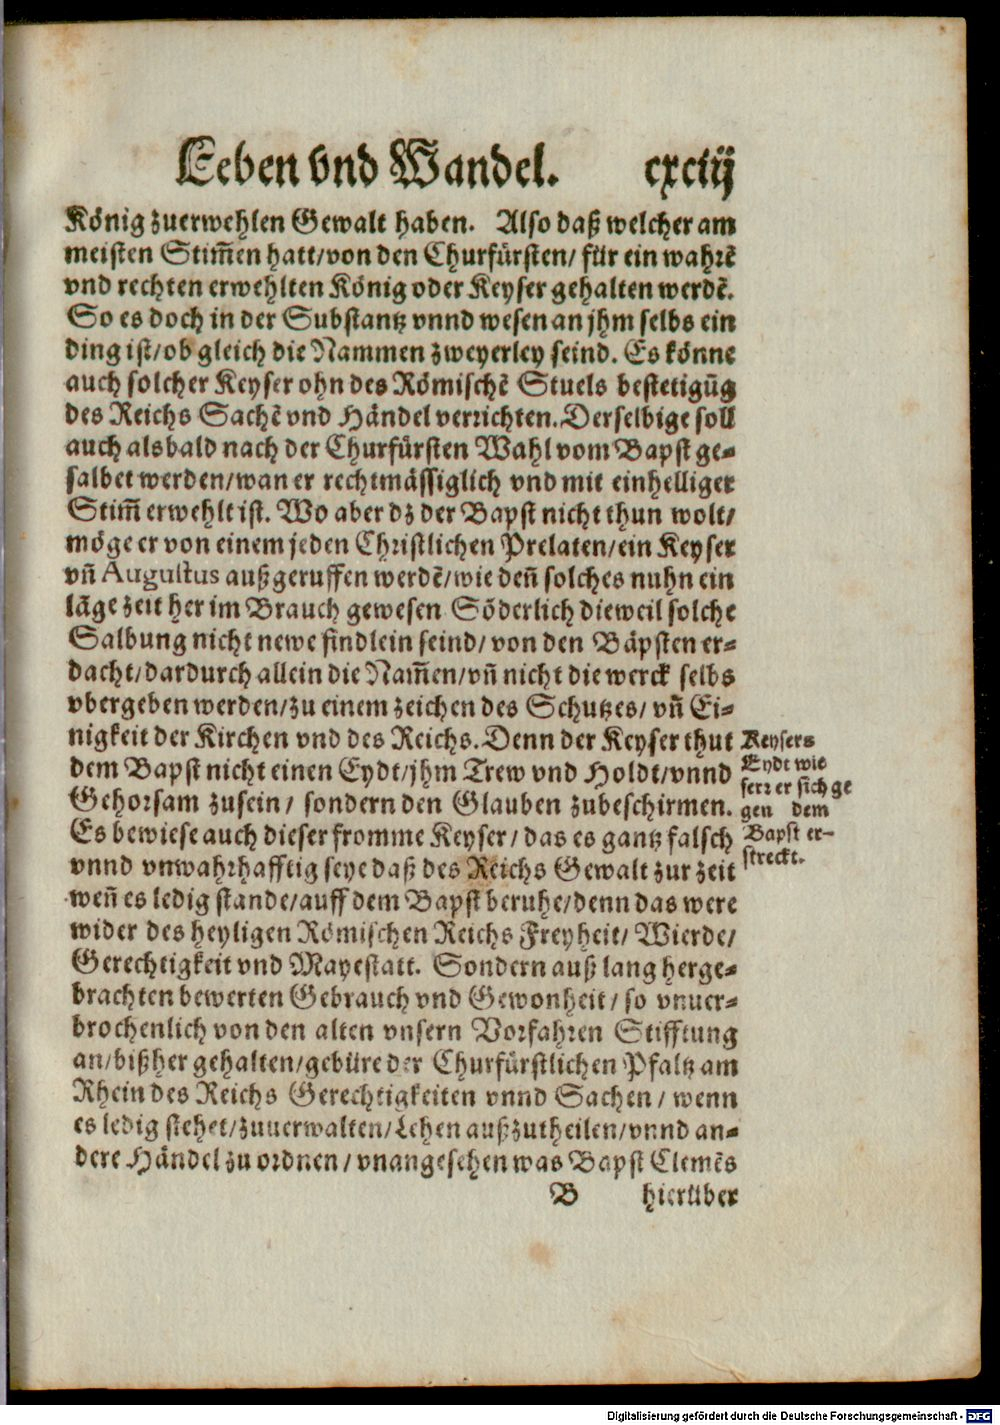 Leben vnd Wandel. cxciij
König zuerwehlen Gewalt haben. Also daß welcher am
meisten Stim̃en hatt/von den Churfürsten/ für ein wahrẽ
vnd rechten erwehlten König oder Keyser gehalten werdẽ.
So es doch in der Substantz vnnd wesen an jhm selbs ein
ding ist/ob gleich die Nammen zweyerley seind. Es könne
auch solcher Keyser ohn des Römischẽ Stuels bestetigũg
des Reichs Sachẽ vnd Händel verrichten. Derselbige soll
auch alsbald nach der Churfürsten Wahl vom Bapst ge-
salbet werden/wan er rechtmässiglich vnd mit einhelliger
Stim̃ erwehlt ist. Wo aber dz der Bapst nicht thun wolt/
möge er von einem jeden Christlichen Prelaten/ein Keyser
vñ Augustus außgeruffen werdẽ/wie deñ solches nuhn ein
lãge zeit her im Brauch gewesen Söderlich dieweil solche
Salbung nicht newe findlein seind/ von den Bäpsten er-
dacht/dardurch allein die Nam̃en/vñ nicht die werck selbs
vbergeben werden/zu einem zeichen des Schutzes/ vñ Ei-
nigkeit der Kirchen vnd des Reichs. Denn der Keyser thut
dem Bapst nicht einen Eydt/jhm Trew vnd Holdt/vnnd
Gehorsam zusein/ sondern den Glauben zubeschirmen.
Es bewiese auch dieser fromme Keyser/ das es gantz falsch
vnnd vnwahrhafftig seye daß des Reichs Gewalt zur zeit
weñ es ledig stande/auff dem Bapst beruhe/denn das were
wider des heyligen Römischen Reichs Freyheit/ Wierde/
Gerechtigkeit vnd Mayestatt. Sondern auß lang herge-
brachten bewerten Gebrauch vnd Gewonheit/ so vnuer-
brochenlich von den alten vnsern Vorfahren Stifftung
an/bißher gehalten/gebüre der Churfürstlichen Pfaltz am
Rhein des Reichs Gerechtigkeiten vnnd Sachen/ wenn
es ledig stehet/zuuerwalten/Lehen außzutheilen/vnnd an-
dere Händel zu ordnen/vnangesehen was Bapst Clemẽs
B hierüber
Keysers
Eydt wie
ferr er sich ge
gen dem
Bapst er-
streckt.
Digitalisierung gefördert durch die Deutsche Forschungsgemeinschaft - DFG